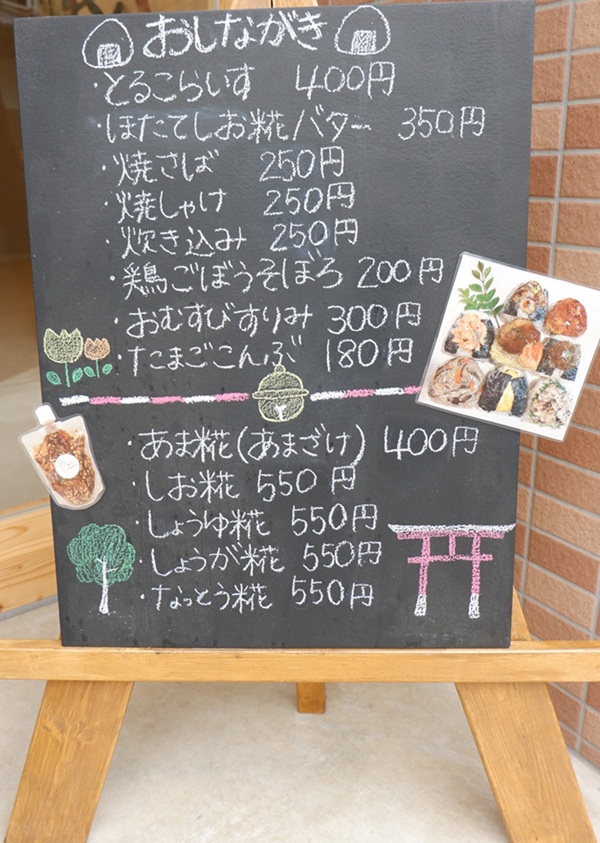 おしながき
・とるこらいす 400円
・ほたてしお糀バター 350円
・焼さば 250円
・焼しゃけ 250円
・炊き込み 250円
・鶏ごぼうそぼろ 200円
・おむすびすりみ 300円
・たまごこんぶ 180円
・あま糀(あまざけ) 400円
・しお糀 550円
・しょうゆ糀 550円
・しょうが糀 550円
・なっとう糀 550円